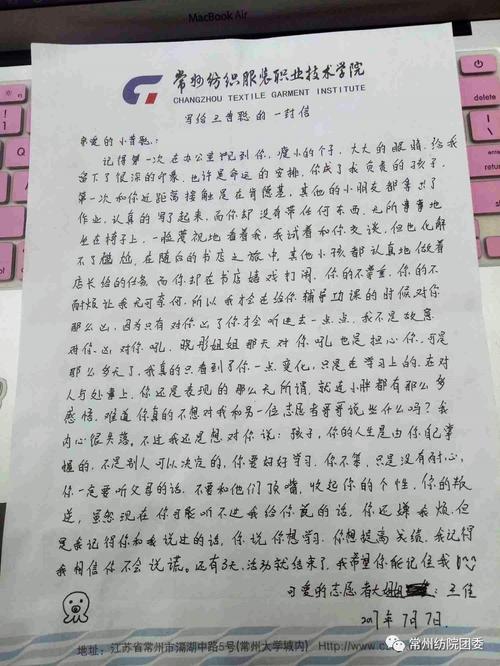 MacBook Air
常州纺织服装职业技术学院
CHANGZHOU TEXTILE GARMENT INSTITUTE
写给王普聪的一封信
亲爱的小普聪:
记得第一次在办公室见到你,瘦小的个子,大大的眼睛,给我
留下了很深的印象,也许是命运的安排,你成了我负责的孩子,
第一次和你近距离接触是在肯德基,其他的小朋友都拿出了
作业,认真的写了起来,而你却没有带任何东西,无所事事地
坐在椅子上,一脸蔑视地看着我,我试着和你交谈,但也化解
不了尴尬,在随后的书店之旅中,其他小孩都认真地做着
店长给的任务而你却在书店嬉戏打闹,你的不尊重,你的不
耐烦让我无可奈何,所以我才会在给你辅导功课的时候对你
那么凶,因为只有对你凶了你才会听进去一点点,我不是故意
对你凶,对你吼,晓彤姐姐那天对你吼也是担心你,可是
那么多天了,我真的只看到了你一点变化,只是在学习上的,在对
人与处事上,你还是表现的那么无所谓,就连小胖都有那么多
感悟,难道你真的不想对我和另一位志愿者哥哥说些什么吗?我
内心很失落,不过我还是想对你说:孩子,你的人生是由你自己掌
握的,不是别人可以决定的,你要好好学习,你不笨,只是没有耐心,
你一定要听父母的话,不要和他们顶嘴,收起你的个性,你的叛
逆,虽然现在你可能听不进我给你说的话,你还嫌我烦,但
是我记得你和我说过的话,你说你想学习,你想提高成绩,我记得
我相信你不会说谎,还有3天,活动就结束了,我希望你能记住我
可爱的志愿者大姐姐:王佳
2017年7月7日
地址:江苏省常州市滆湖中路5号(常州大学城内)
常州纺院团委